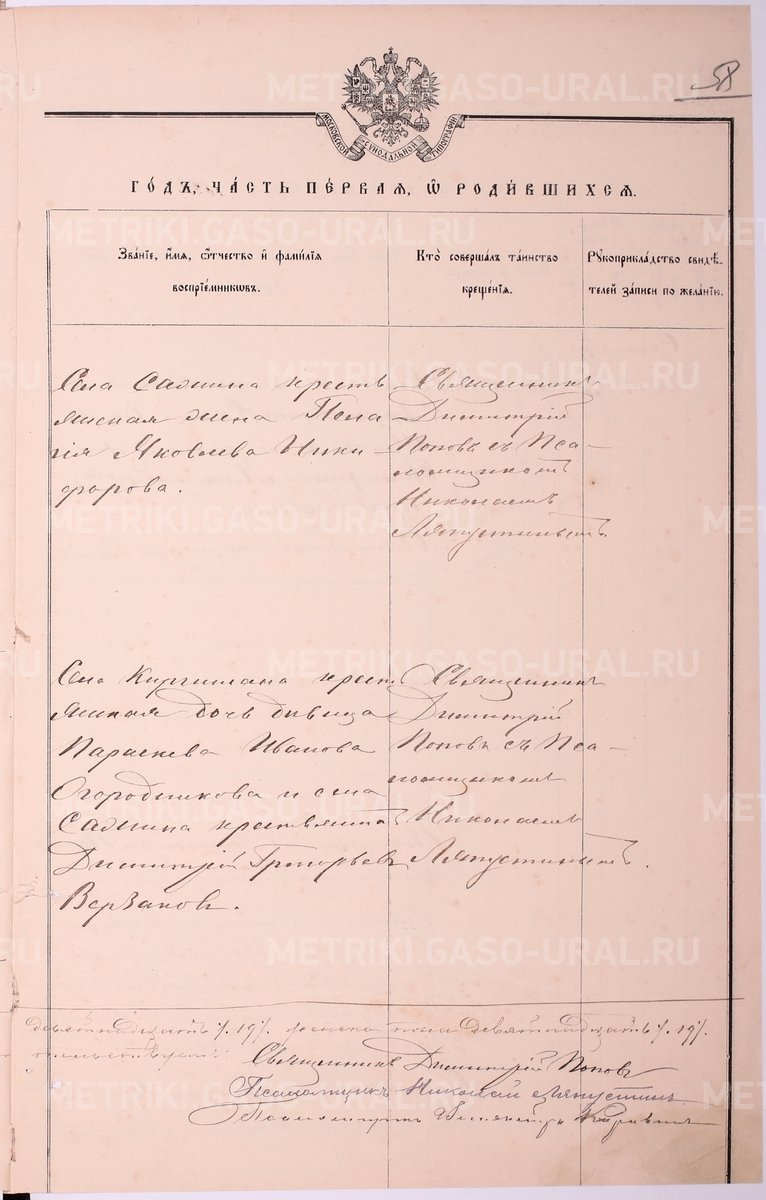 58
МОСКОВСКОЙ СѴНОДАЛЬНОЙ ТИПОГРАФІИ
ГО́ДЪ, ЧА́СТЬ ПЕ́РВАЯ, Ѡ РОДИ́ВШИХСЯ.
Зва́нїе, и́мя, ѻ҆́тчество и҆ фами́лїя
воспрїе́мникωвъ.
Кто̀ соверша́лъ та́инство
креще́нїя.
Рꙋкоприкла́дство свидѣ́-
телей за́писи по жела́нїю.
Села Садшина кресть
янская жена Пела
гія Яковлева Ники-
форова.
Священникъ
Димитрій
Поповъ съ Пса-
ломщикомъ
Николаемъ
Ляпустинымъ.
Села Киргишана крест
янская дочь дѣвица
Параскева Иванова
Огородникова и села
Садшина крестьянинъ
Димитрій Григорьевъ
Верзаковъ.
Священникъ
Димитрій
Поповъ съ Пса-
ломщикомъ
Николаемъ
Ляпустинымъ.
девятнадцать /. 19 /. женска пола девятнадцать /. 19 /.
Священникъ Димитрій Поповъ
Псаломщикъ Николай Ляпустинъ
Псаломщикъ
METRIKI.GASO-URAL.RU